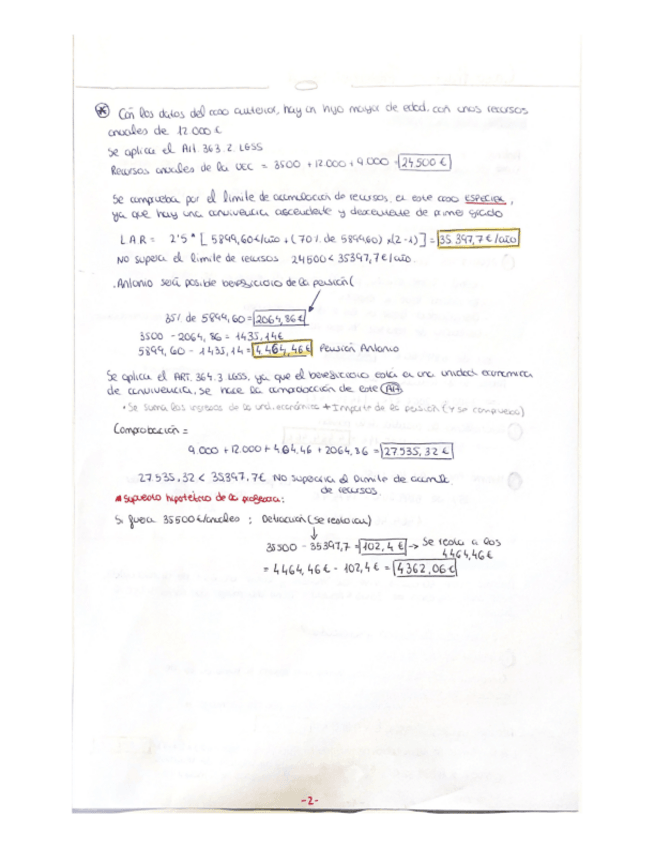 * Con los datos del caso anterior, hay un hijo mayor de edad, con unos recursos
anuales de 12.000 €
Se aplica el Art. 363.2. LGSS
Recursos anuales de la UEC = 3500 + 12.000 + 9.000 = 24.500 €
Se comprueba por el límite de acumulación de recursos, en este caso ESPECIAL,
ya que hay una convivencia ascendente y descendente de primer grado
L.A.R = 2'5 * [ 5899,60€/año + (70% de 5899,60) x (2-1) ] = 35.397,7 €/año
No supera el límite de recursos 24500 < 35397,7€/año.
. Antonio será posible beneficiario de la pensión (
35% de 5899,60 = 2064,86 €
3500 - 2064,86 = 1435,14€
5899,60 - 1435,14 = 4.464,46€ Pensión Antonio
Se aplica el ART. 364.3 LGSS, ya que el beneficiario está en una unidad económica
de convivencia, se hace la comprobación de este Art.
• Se suma los ingresos de la unid. económica + Importe de la pensión (y se comprueba)
Comprobación =
9.000 + 12.000 + 4.464.46 + 2064,36 = 27535,32 €
27.535,32 < 35397,7€ No superaría el límite de acumul.
de recursos
* Supuesto hipotético de la profesora:
Si fuera 35500€/anuales : Detracción (se resta con)
35500 - 35397,7 = 102,4 € → Se resta a los
4464,46€
= 4464,46€ - 102,4€ = 4362,06€
-2-